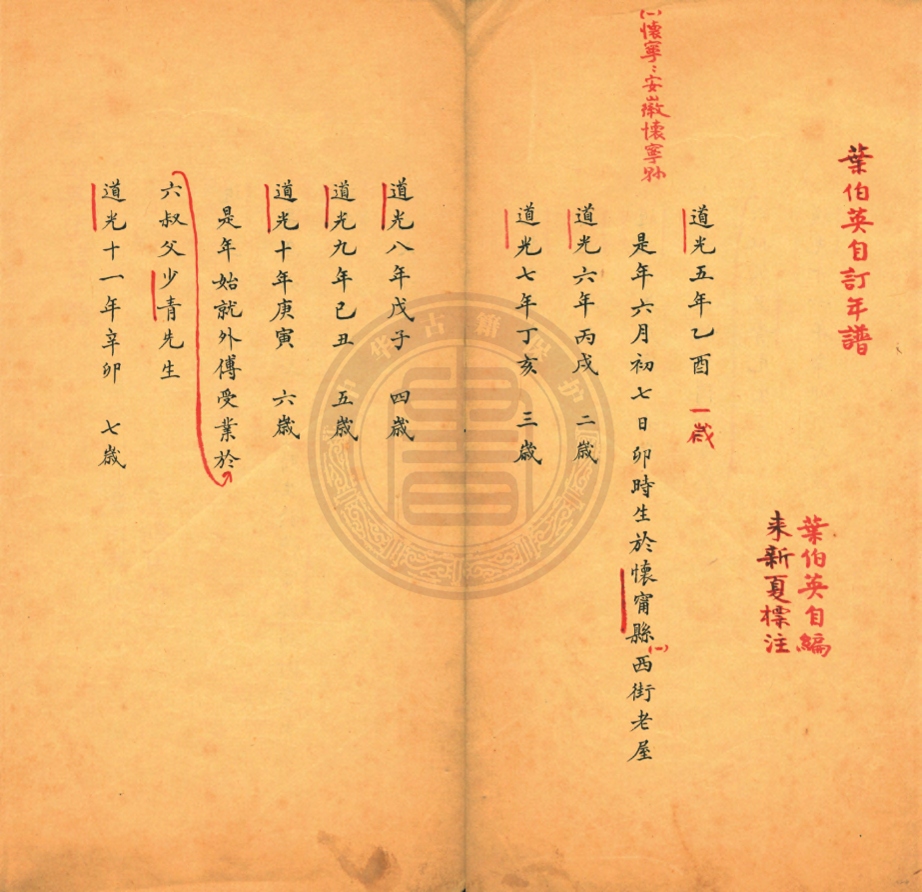 葉伯英自訂年譜
葉伯英自編
来新夏標注
道光五年乙酉 一歲
(一)懷寧:安徽懷寧县
是年六月初七日卯時生於懷甯縣(一)西街老屋
道光六年丙戌 二歲
道光七年丁亥 三歲
道光八年戊子 四歲
道光九年己丑 五歲
道光十年庚寅 六歲
是年始就外傅受業於
六叔父少青先生
道光十一年辛卯 七歲
中华古籍保护